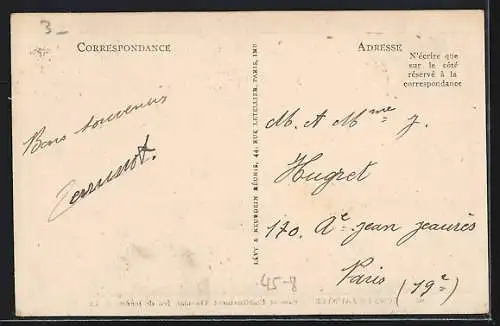 3-
CORRESPONDANCE
ADRESSE
N'écrire que
sur le côté
réservé à la
correspondance
Bons souvenirs
LÉVY & NEURDEIN RÉUNIS, 44, RUE LETELLIER, PARIS, IMP
M. A Mme J.
Hugret
170. Ae jean jaurès
Paris (19e)
45-8